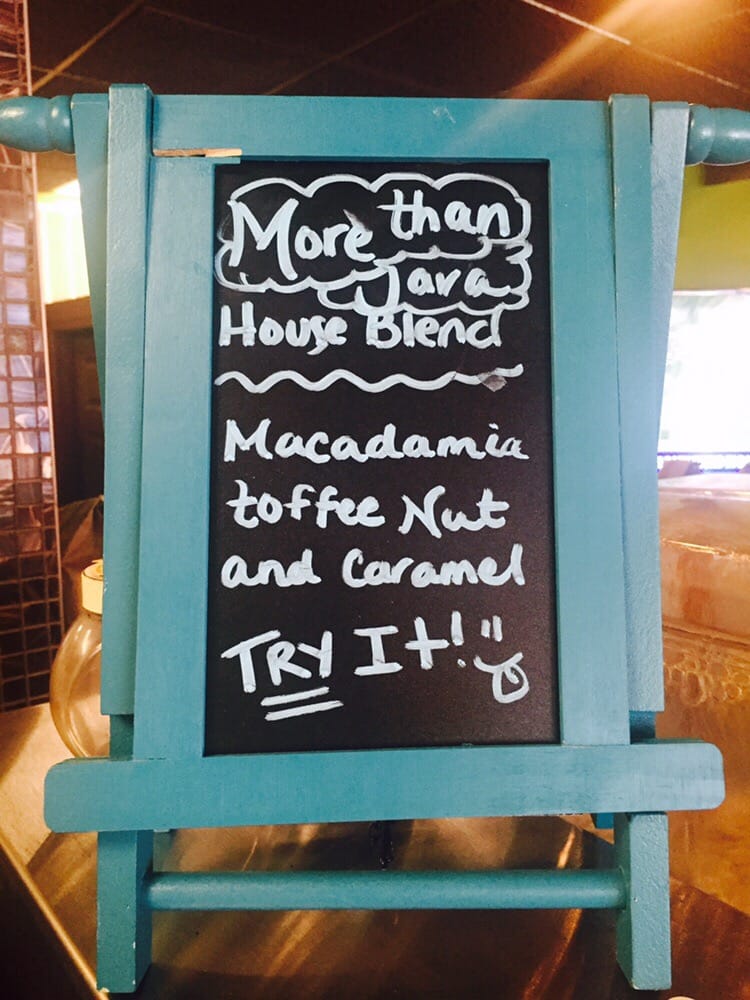 More than
Java
House Blend
Macadamia
toffee Nut
and Caramel
TRY It!